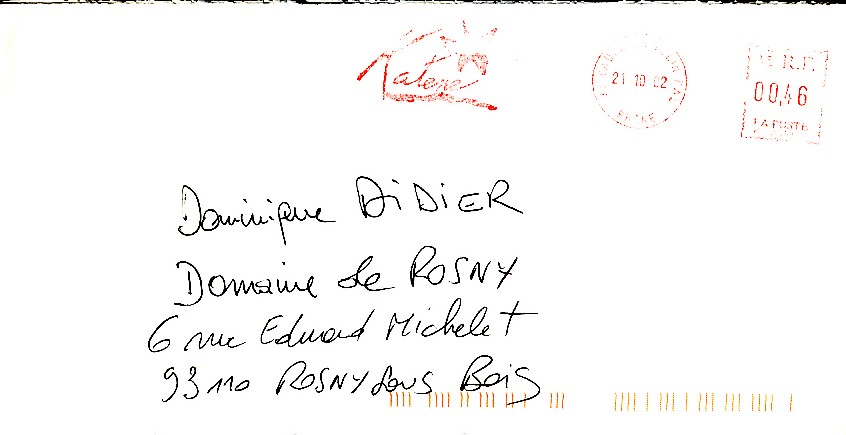 Katene
21 10 02
RHONE
R.F
00,46
LA POSTE
Dominique DiDiER
Domaine de ROSNY
6 rue Edouard Michelet
93110 ROSNY Sous Bois